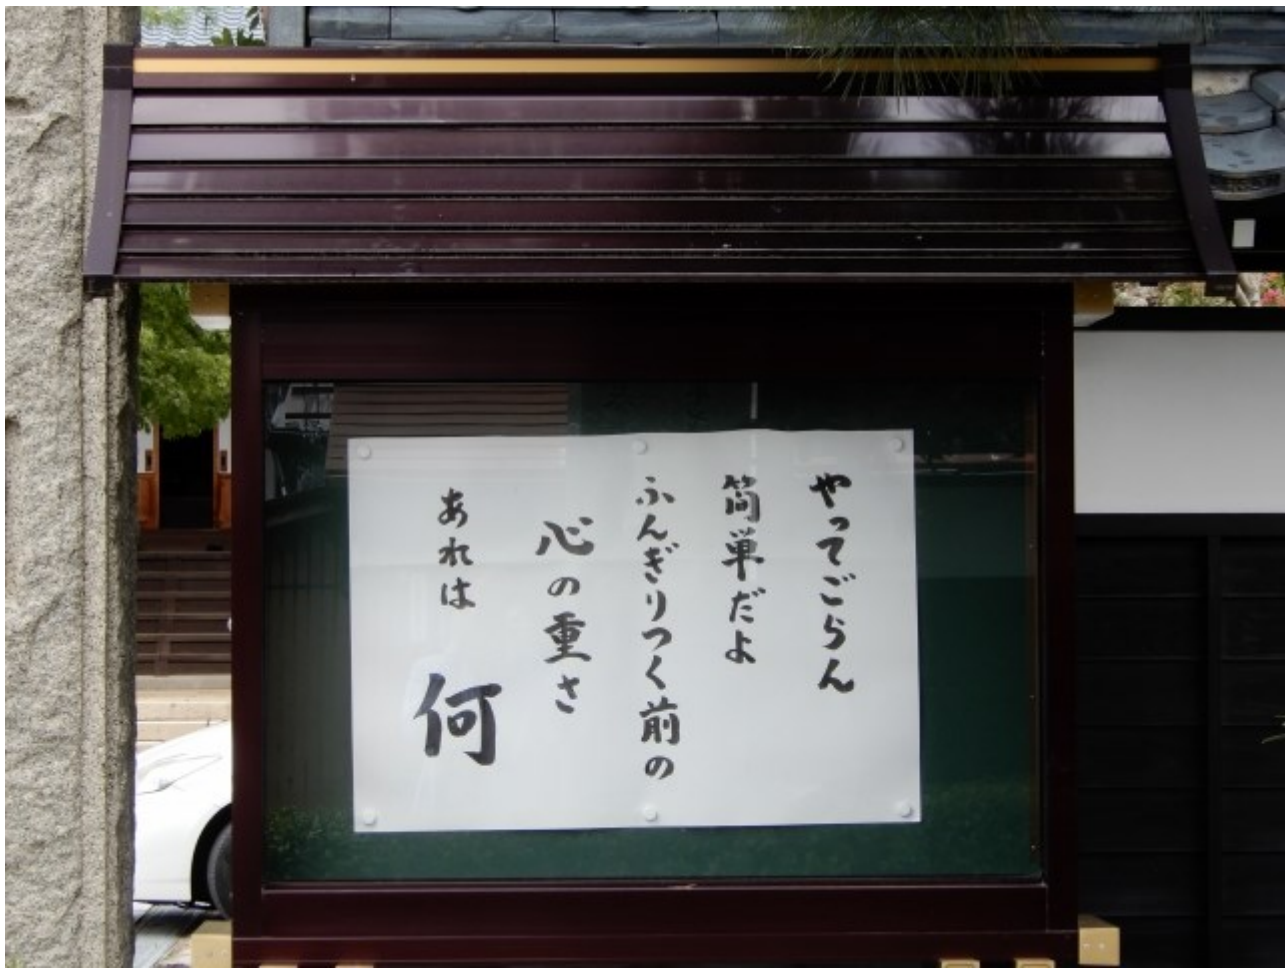 やってごらん
簡単だよ
ふんぎりつく前の
心の重さ
あれは 何